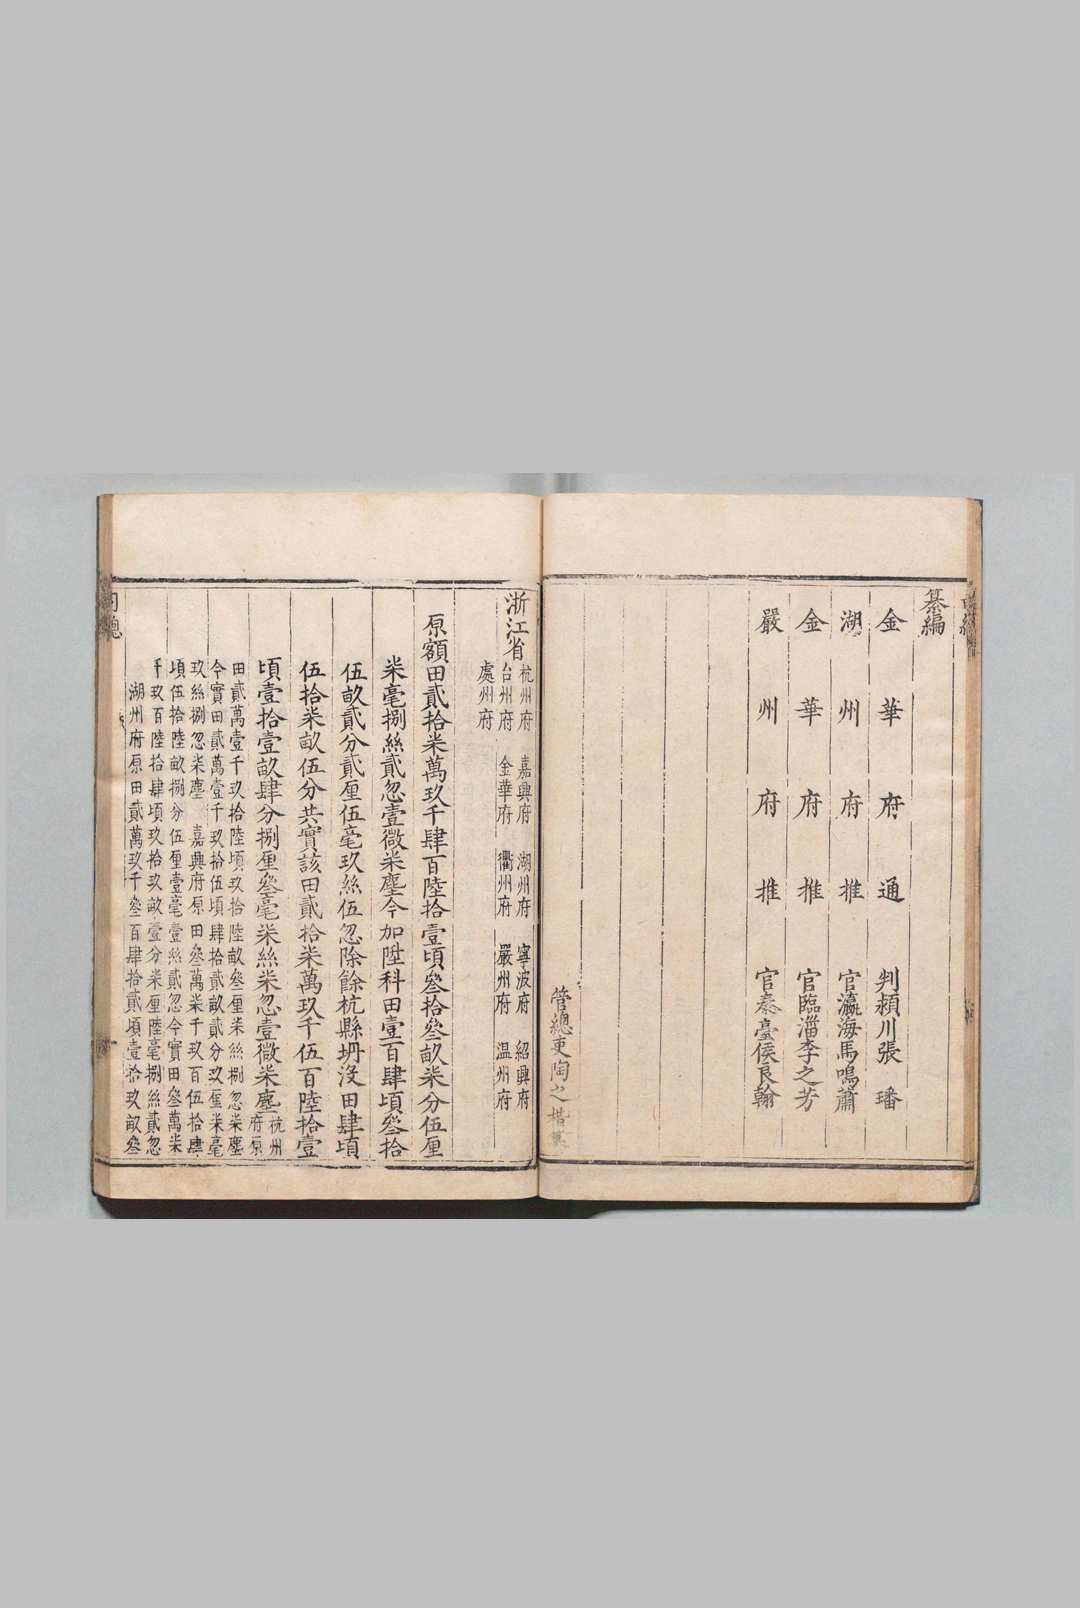 纂編
金華府通判潁川張璠
湖州府推官瀛海馬鳴蕭
金華府推官臨淄李之芳
嚴州府推官秦臺侯良翰
管總吏陶之楷
浙江省
杭州府 嘉興府 湖州府 寧波府 紹興府
台州府 金華府 衢州府 嚴州府 温州府
處州府
原額田貳拾柒萬玖千肆百陸拾壹頃叄拾叄畝柒分伍厘
柒毫捌絲貳忽壹微柒塵今加陞科田壹百肆頃叄拾
伍畝貳分貳厘伍毫玖絲伍忽除餘杭縣坍沒田肆頃
伍拾柒畝伍分共實該田貳拾柒萬玖千伍百陸拾壹
頃壹拾壹畝肆分捌厘叄毫柒絲柒忽壹微柒塵
杭州
府原
田貳萬壹千玖拾陸頃玖拾陸畝叄厘柒絲捌忽柒塵
今實田貳萬壹千玖拾伍頃肆拾貳畝貳分玖厘柒毫
玖絲捌忽柒塵 嘉興府原田叄萬柒千玖百伍拾肆
頃伍拾陸畝捌分伍厘壹毫壹絲貳忽今實田叄萬柒
千玖百陸拾肆頃玖拾玖畝壹分柒厘陸毫捌絲貳忽
湖州府原田貳萬玖千叄百肆拾貳頃壹拾玖畝叄
司總